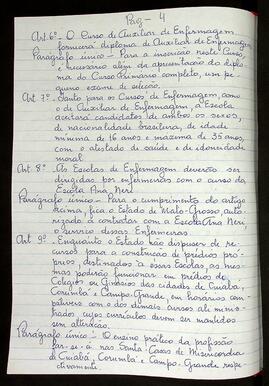 Pág - 4
Art. 6º - O Curso de Auxiliar de Enfermagem
fornecerá diploma de Auxiliar de Enfermagem
Parágrafo único - Para a inscrição neste Curso,
necessário além da apresentação do diplo
ma do Curso Primário completo, um pe
queno exame de seleção.
Art. 7º - Tanto para os Cursos de Enfermagem, como
o de Auxiliar de Enfermagem, a Escola
aceitará candidatos de ambos os sexos,
de nacionalidade brasileira, de idade
mínima de 16 anos e máxima de 35 anos,
com o atestado de saúde e de idoneidade
moral
Art. 8º - As Escolas de Enfermagem deverão ser
dirigidas por enfermeiras com o curso da
Escola Ana Neri
Parágrafo único - Para o cumprimento do artigo
acima, fica o Estado de Mato-Grosso, auto
rizado a contratar com a Escola Ana Neri
o serviço dessas Enfermeiras
Art 9º - Enquanto o Estado não dispuser de re
cursos para a construção de prédios pró
prios, destinados a essas Escolas, as mes
mas poderão funcionar em prédios de
Colégios ou Ginásios das cidades de Cuiabá,
Corumbá e Campo-Grande, em horários com
patíveis com o dos demais cursos ali minis
trados, cujos currículos devem ser mantidos
sem alteração.
Parágrafo único - O ensino prático da profissão
far-se-á nas Santa-Casas de Misericórdia
de Cuiabá, Corumbá e Campo-Grande respe
ctivamente.